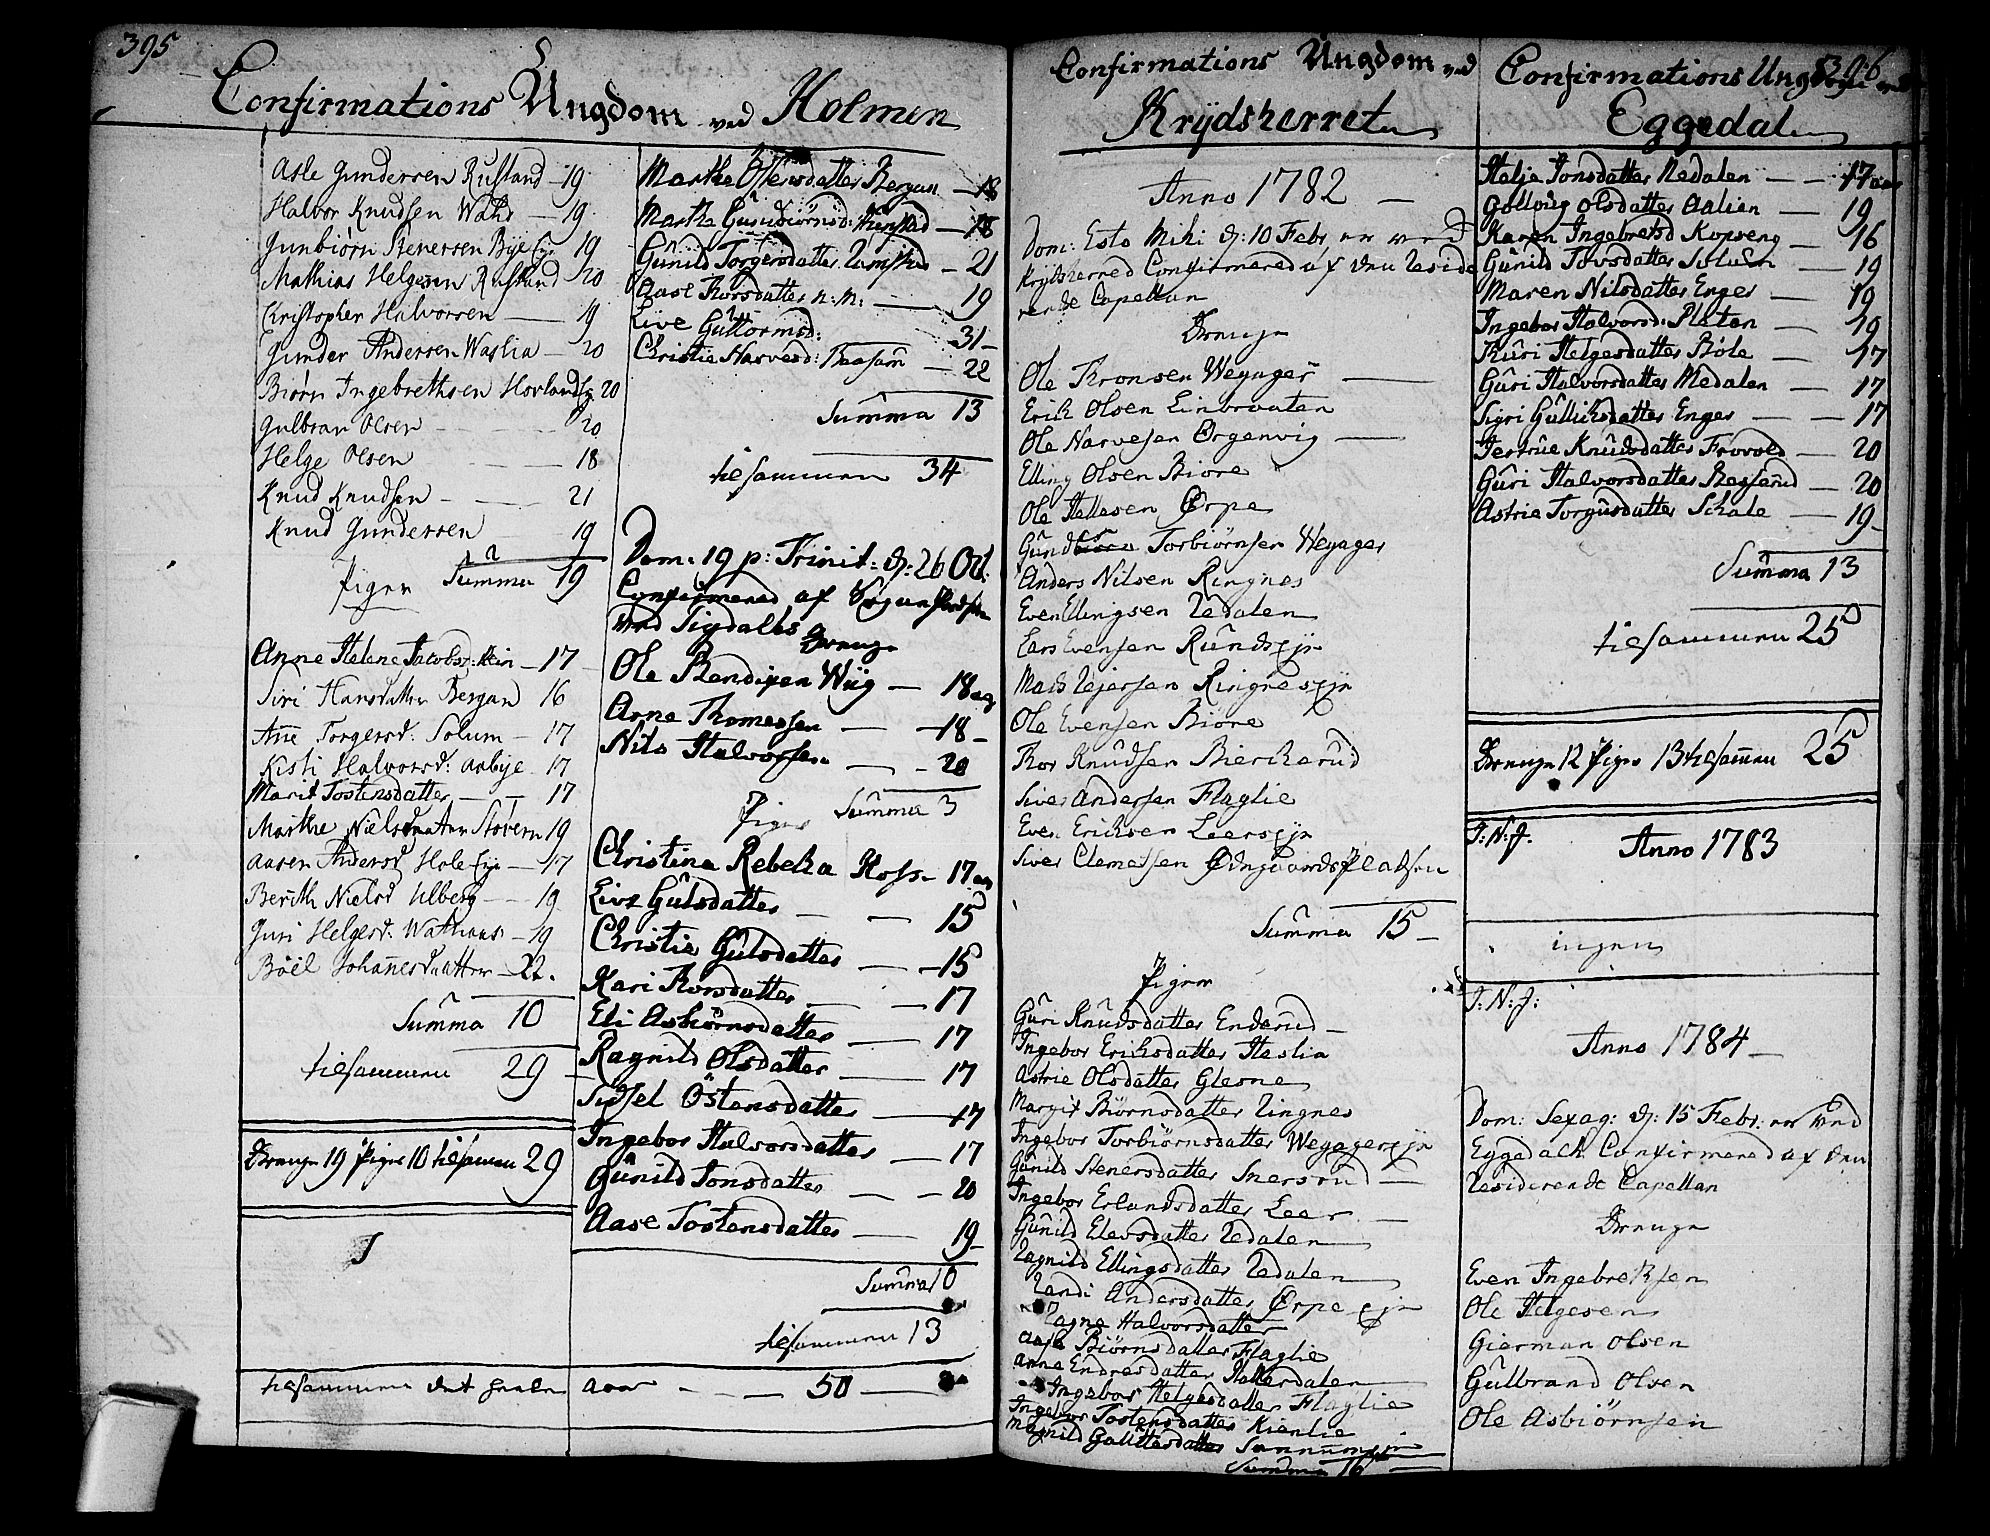 395
Confirmations Ungdom ved Holmen
Asle Gundersen Rustand 19
Halvor Knudsen 19
Gunbiørn Stenersen Bye Ej: 19
Mathias Helgesen Rustand 20
Christopher Halvorsen 19
Gunder Andersen Waslia 20
Biørn Ingebrethsen Hovland Ej 20
Gulbran Olsen 20
Helge Olsen 18
Knud Knudsen 21
Knud Gundersen 19
Summa 19
Piger
Anne Helene Jacobsd: 17
Siri Hansdatter Bergan 16
Añe Torgersd: Solum 17
Kisti Halvorsd: Aabye 17
Marit Tostensdatter 17
Marthe Nielsdaatter Støvern 19
Aaren Andersd Hole Ej 17
Berith Nielsd Ulberg 19
Guri Helgesd: 19
Böel Johañesdaatter 22.
Summa 10
tilsammen 29
Drenge 19 Piger 10 tilsamen 29
tilsammen det heele
Marthe Bergan 18
Marthe Gundbiörnsd: 18
Günild Torgersdatter 21
Aase Thorsdatter n: n: 19
Live Güttormsd: 31
Christie Narvesd: Baasom 22
Summa 13
tilsammen 34
Dom: 19 p: Trinit: d: 26 Oct:
Confirmered af
ved Sigdahls
Drenge
Ole Bendixen Wiig 18 aar
Arne Thomessen 18
Nils Halvorsen 20
Summa 3
Piger
Christina Rebekka 17 aar
Live Gülsdatter 15
Christie Gülsdatter 15
Kari Thorsdatter 17
Eli Asbiörnsdatter 17
Ragnild Olsdatter 17
Sidsel Östensdatter 17
Ingebor Halvorsdatter 17
Günild Jonsdatter 20
Aase Tostensdatter 19
Summa 10
tilsammen 13
Aar 50
Confirmations Ungdom ved
Krydsherret
Anno 1782
Dom: Esto Mihi d: 10 Febr er ved
Krydsherred Confirmered af den Reside
rende Capellan
Drenge
Ole Thronsen Weyager
Erik Olsen Linbraaten
Ole Narvesen Ørgenvig
Elling Olsen Biöre
Ole Hellesen Ørpe
Gund Torbiörnsen Weyager
Anders Nilsen Ringnes
Even Ellingsen Redalen
Lars Evensen Rundsejr
Mads Ringnesejr
Ole Evensen Biöre
Thor Knudsen Bierkerud
Siver Andersen Flaglie
Even Eriksen Leersejr
Siver Clemetsen
Summa 15
Piger
Güri Knudsdatter Enderud
Ingebor Eriksdatter Heslia
Astrie Olsdatter Glesne
Margit Biörnsdatter Ringnes
Ingebor Torbiörnsdatter Weyagersejr
Günild Stenersdatter Snersrud
Ingebor Erlandsdatter Leer
Günild Elevsdatter Redalen
Ragnild Ellingsdatter Redalen
Randi Andersdatter Ørpe ejr
Ragne Halvorsdatter
Aase Biörnsdatter Flaglie
Anne Endresdatter Hallerdalen
Ingebor Helgesdatter Flaglie
Ingebor Tostensdatter Kienlie
Magnild
Summa 16
396
Confirmations Ungdom ved
Eggedal
Helje Jonsdatter Nedalen 17 aar
Gollaug Olsdatter Aalien 19
Karen Ingebretsd Kopseng 16
Günild Tovsdatter Solum 19
Maren Nilsdatter Enger 19
Ingebor Halvorsd: Platen 19
Thuri Helgesdatter Böle 17
Güri Halvorsdatter Medalen 17
Sigri Güllicksdatter Enger 17
Jertrue Knudsdatter Frövold 20
Güri Halvorsdatter 20
Astrie Torgusdatter Schale 19
Summa 13
tilsammen 25
Drenge 12 Piger 13 tilsamen 25
I: N: J:
Anno 1783
ingen
I: N: J:
Anno 1784
Dom: Sexag: d: 15 Febr: er ved
Eggedahl Confirmered af den
Residerende Capellan
Drenge
Even Ingebretsen
Ole Helgesen
Gierman Olsen
Gulbrand Olsen
Ole Asbiörnsen